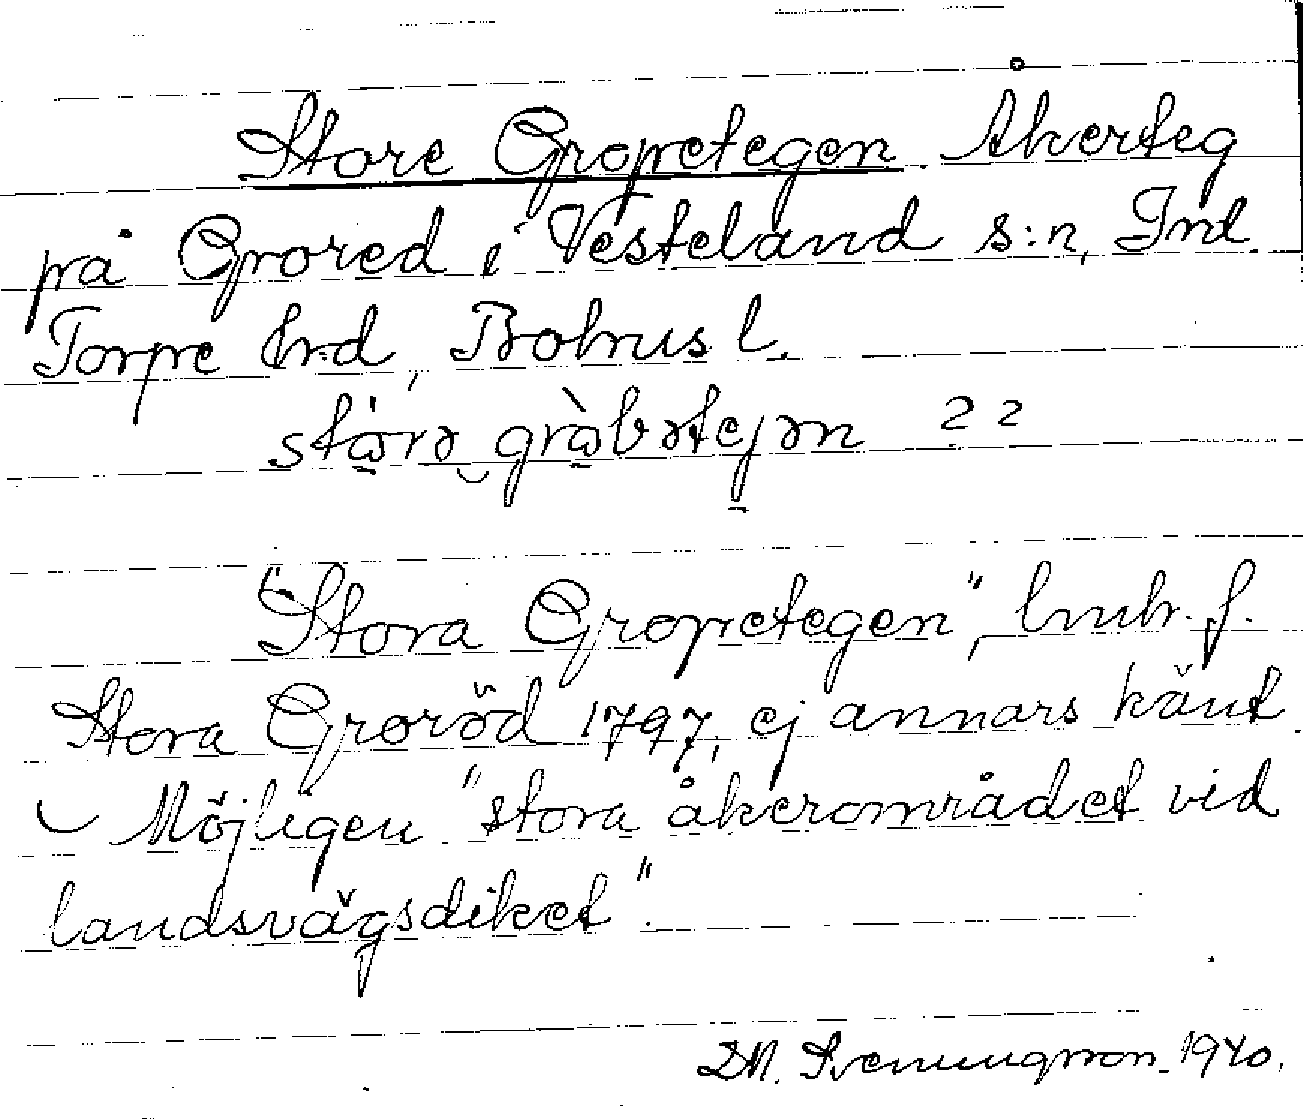 Store Gropetegen. Åkerteg
på Grored i Vesteland s:n, Inl.
Torpe hrd, Bohus l.
stǻrə grȧbətejən 22
"Stora Gropetegen", lmtr. f.
Stora Groröd 1797, ej annars känt.
Möjligen "stora åkerområdet vid
landsvägsdiket".
S.M. Svenungsson. 1940.